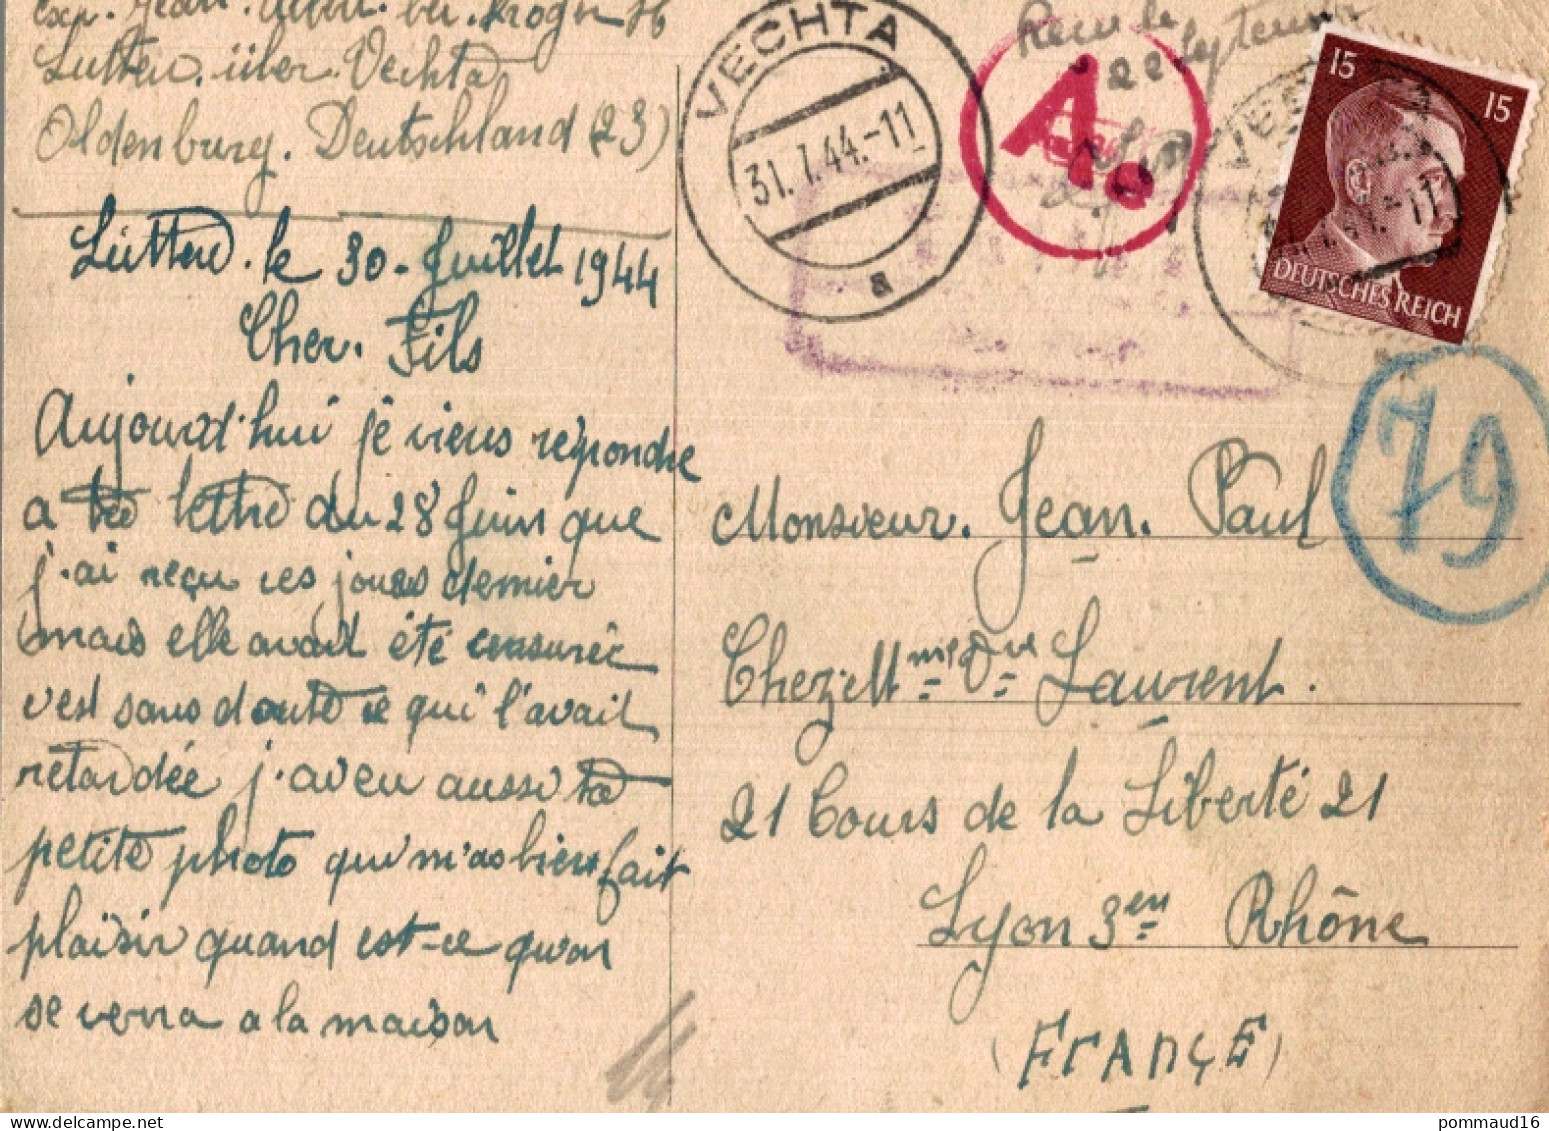 Exp. Jean. Albert. bei. Kroger H
Lutten. über. Vechta
Oldenburg. Deutschland (23)
Lutten. le 30 - Juillet 1944
Cher. Fils
Aujourd'hui je viens repondre
a ta lettre du 28 Juin que
j.ai reçu ces jours dernier
mais elle avait été censurée
c'est sans doute ce qui l'avait
retardée j.aveu aussi ta
petite photo qui m'as bien fait
plaisir quand est-ce qu'on
se verra a la maison
VECHTA
31.7.44.-11
a
Ae
Reçu le
Septembre
15
15
DEUTSCHES REICH
79
Monsieur. Jean. Paul
Chez Mme Vve Laurent.
21 Cours de la Liberté 21
Lyon 3em Rhône
(FRANÇE)
pommaud16